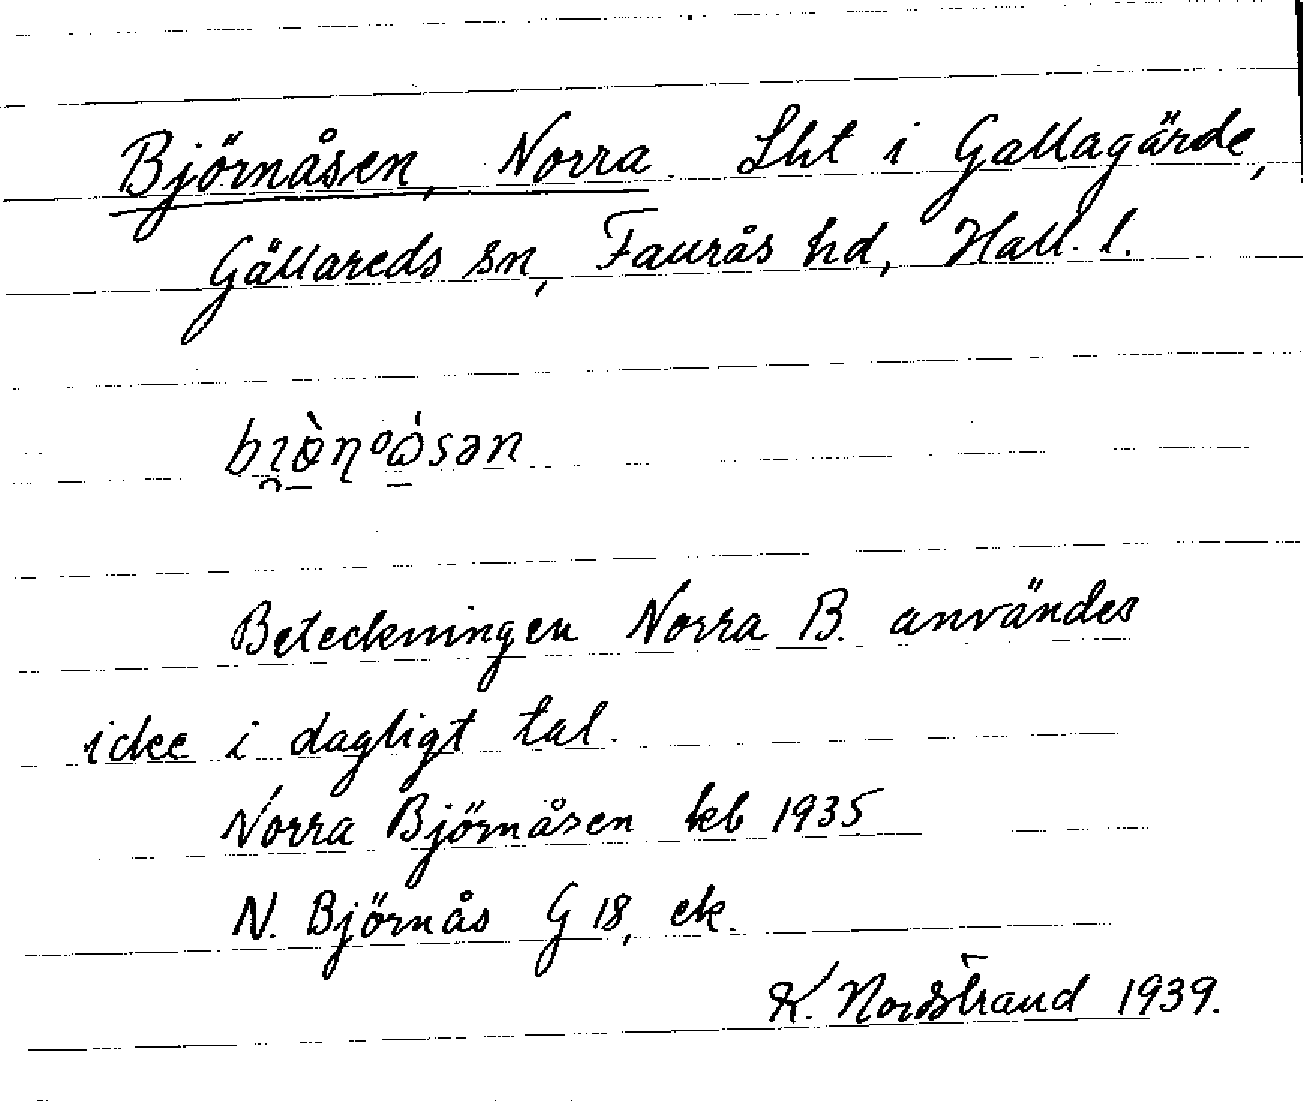 Björnåsen, Norra. Lht i Gällagärde,
Gällareds sn, Faurås hd, Hall. l.
Beteckningen Norra B. användes
icke i dagligt tal.
Norra Björnåsen kb 1935
N. Björnås G 18, ek.
K. Nordstrand 1939.